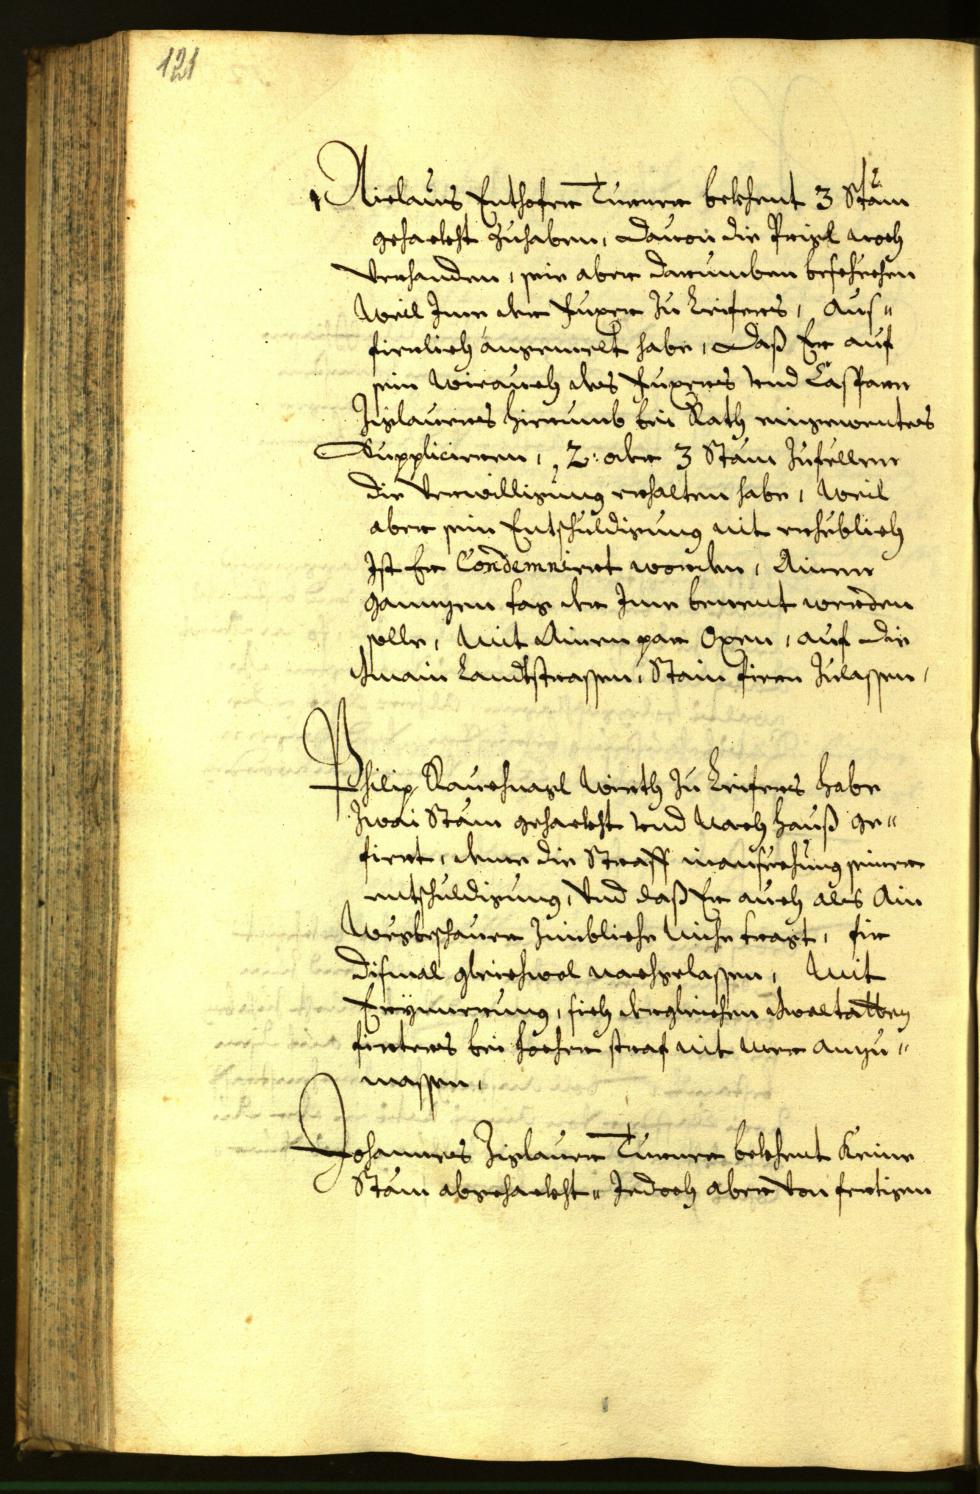 121
Niclaus Enthofer Turner bekhent 3 Stäm
gehackht zuhaben, dauon die Prigl noch
verhanden, seie aber darumben beschehen
Weil Ime der zu Leifers, aus"
fierlich angemelt habe, daß Er auf
sein des vnd Casparn
hierumb bei Rath eingewentes
Suppliciern, 2: oder 3 Stäm zufellen
die verwilligung erhalten habe, Weil
aber sein Entschuldigung nit erheblich
Ist Er Condemniert worden, Ainen
ganntzen tag der Ime benent werden
solle, mit Ainen par Oxen, auf die
gmain Landtstrassen, Stain fieren zulassen,
Philip Wirth zu Leifers habe
zwai Stäm gehackht vnd nach hauß ge"
fiert, deme die Straff in ansechung seiner
entschuldigung, vnd daß Er auch als Ain
Wegbschauer zimbliche Miehe tragt, fir
dißmal gleichwol nachgelassen, Mit
Erynnerung, sich dergleichen gwaltatten
firters bei hocher straf nit mer anzu"
massen,
Johannes Zislauer Turner bekhent Keine
Stäm abgehackht" Jedoch aber von fertigen